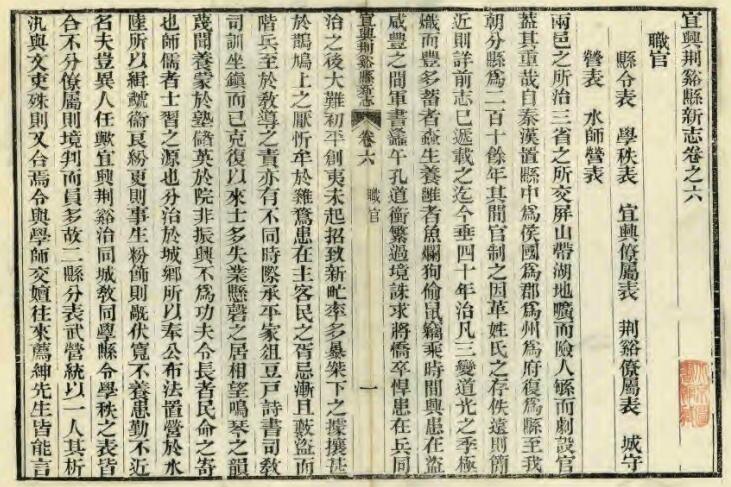 宜興荆谿縣新志卷之六
職官
縣令表 學秩表 宜興僚屬表 荆谿僚屬表 城守
營表 水師營表
兩邑之所治三省之所交屏山帶湖地曠而險人緐而劇設官
蓋其重哉自秦漢置縣中爲侯國爲郡爲州爲府復爲縣至我
朝分縣爲二百十餘年其間官制之因革姓氏之存佚遠則簡
近則詳前志已遞載之迄今垂四十年治凡三變道光之季極
熾而豐多蓄者蟲生養雝者魚爛狗偷鼠竊乘時間興患在盜
咸豐之間軍書蠭午孔道衝繁過境誅求將僑卒悍患在兵同
宜興荆谿縣新志 卷六 職官 一
治之後大難初平創夷未起招致新甿率多暴桀下之攘攘甚
於鵲鳩上之厭忻牟於雞鶩患在主客民之胥忌漸且藪盜而
階兵至於敎導之責亦有不同時際承平家俎豆戸詩書司敎
司訓坐鎭而已克復以來士多失業縣罄之居相望鳴琴之韻
蔑聞養蒙於塾儲英於院非振興不爲功夫令長者民命之寄
也師儒者士習之源也分治於城鄉所以奉公布法置營於水
陸所以緝虣衞良紛更則事生粉飾則伏寬不養患勤不近
名夫豈異人任歟宜興荆谿治同城敎同學縣令學秩之表皆
合不分僚屬則境判而員多故二縣分表武營統以一人其析
汛與文吏殊則又合焉令與學師交嬗往來薦紳先生皆能言